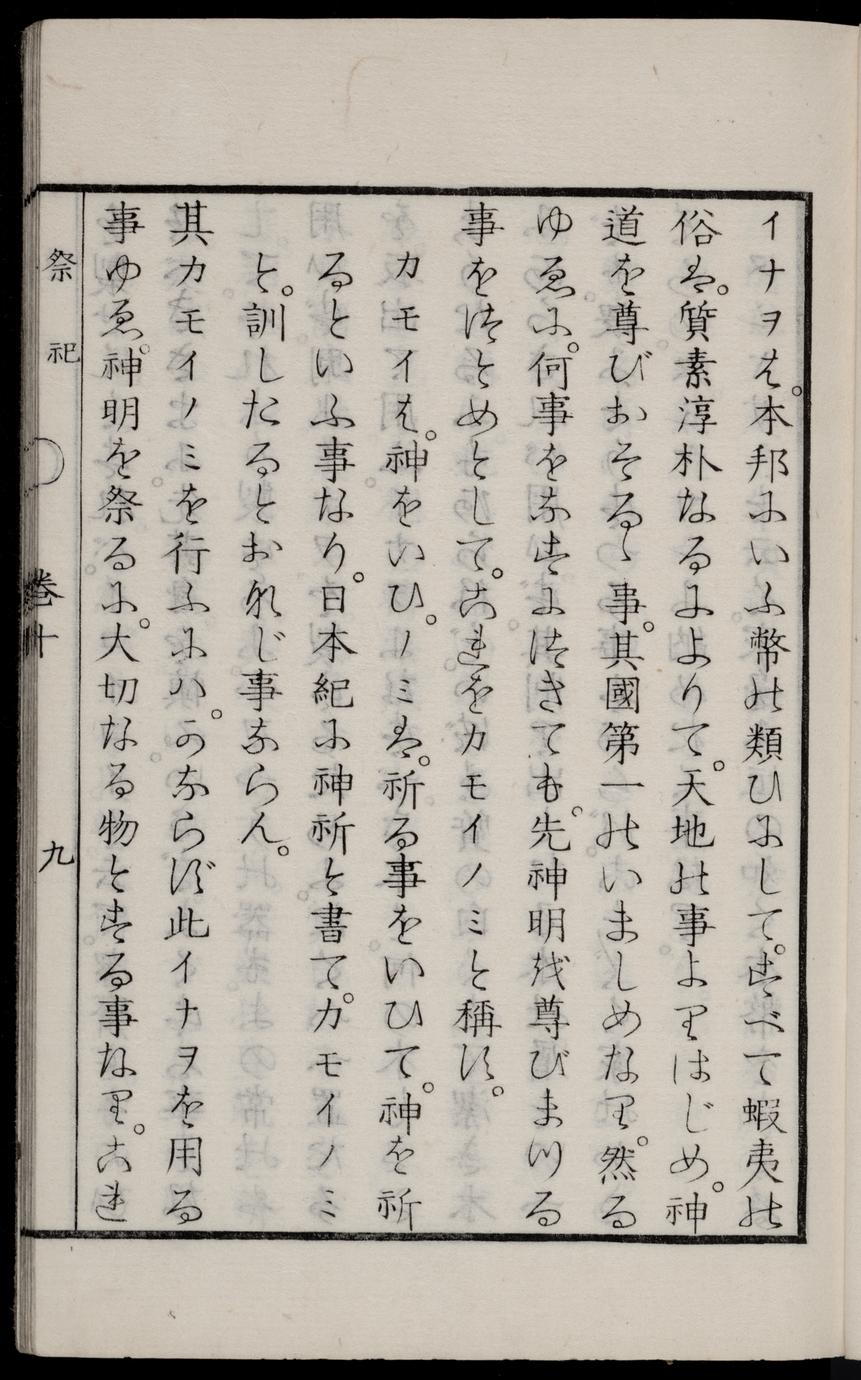 イナヲは。本邦にいふ幣の類ひにして。すべて蝦夷の
俗は。質素淳朴なるによりて。天地の事よりはじめ。神
道を尊びおそるゝ事。其國第一のいましめなり。然る
ゆゑに。何事をなすにつきても。先神明を尊びまつる
事をつとめとして。これをカモイノミと稱す。
カモイは。神をいひ。ノミは。祈る事をいひて。神を祈
るといふ事なり。日本紀に神祈と書て。カモイノミ
と。訓したるとおなじ事ならん。
其カモイノミを行ふにハ。かならず此イナヲを用る
事ゆゑ。神明を祭るに。大切なる物とする事なり。これ
祭祀 巻十 九